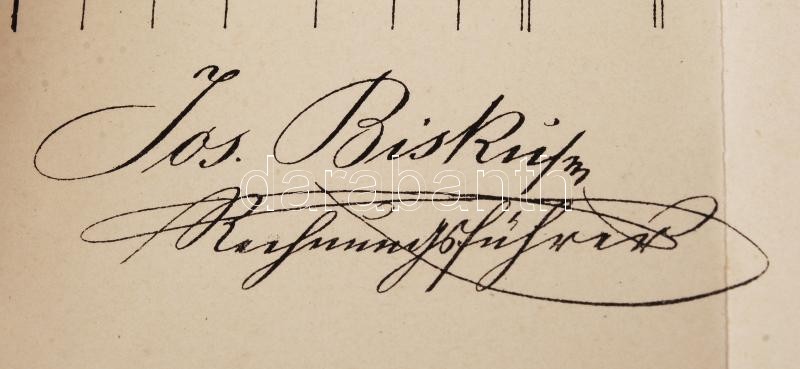 Jos. Biskup
Rechnungsführer
darabanth